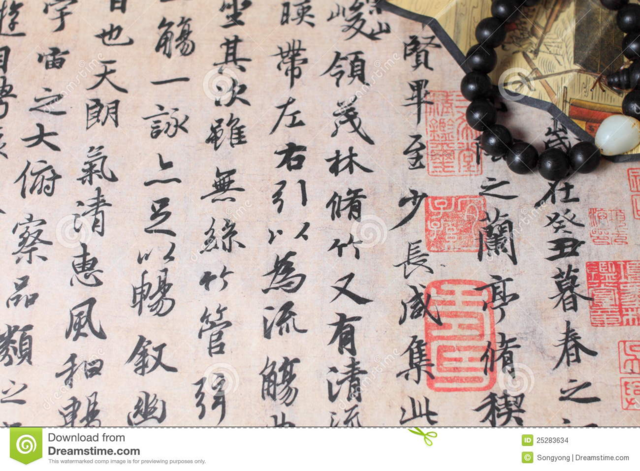 在癸丑暮春之
之蘭亭脩禊
賢畢至少長咸集此
峻領茂林脩竹又有清流
暎帶左右引以為流觴
坐其次雖無絲竹管弦
觴一詠亦足以暢敘幽
日也天朗氣清惠風和暢
宇宙之大俯察品類之
遊目騁
Download from
Dreamstime.com
This watermarked comp image is for previewing purposes only.
25283634
Songyong | Dreamstime.com